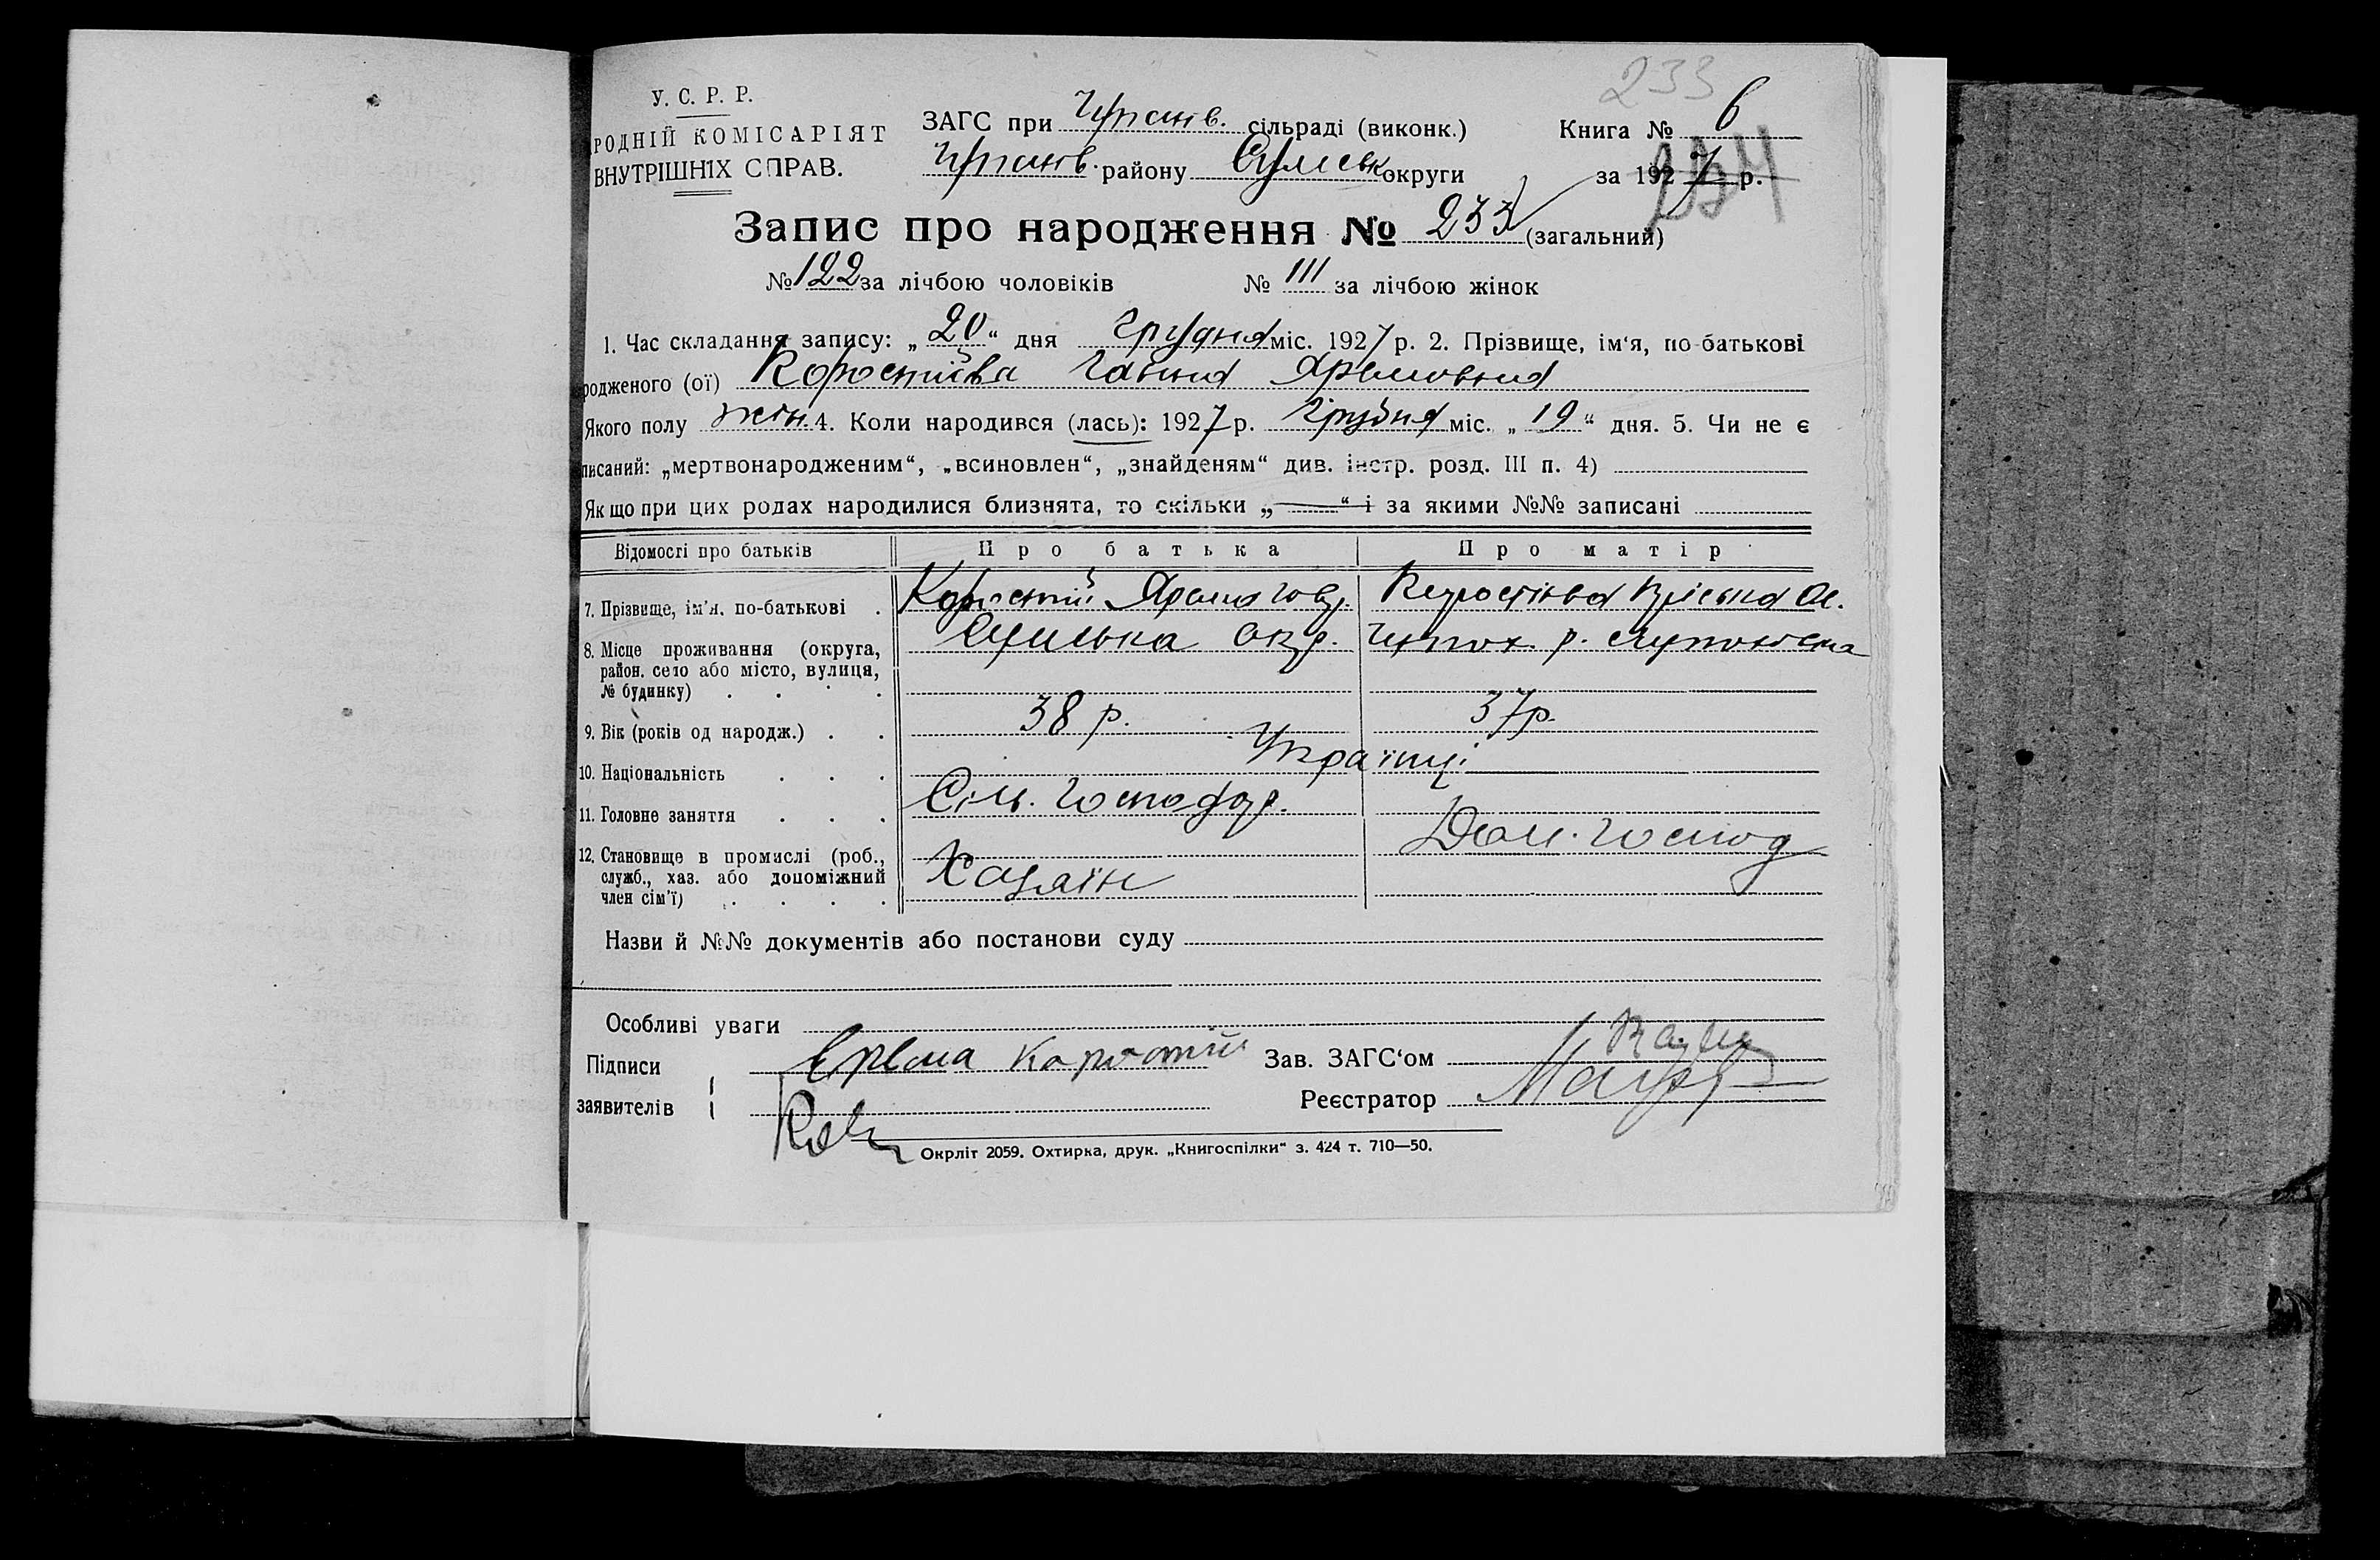 233
У. С. Р. Р.
РОДНІЙ КОМІСАРІЯТ
ВНУТРІШНІХ СПРАВ.
ЗАГС при сільраді (виконк.)
Книга № 6
району Сумськ округи
за 1927 р.
234
Запис про народження № 233 (загальний)
№ 122 за лічбою чоловіків № 111 за лічбою жінок
1. Час складання запису: „ 20 “ дня Грудня міс. 1927 р. 2. Прізвище, ім‘я, по-батькові
родженого (ої) Коростіїва Ганна Яремовна
Якого полу жін. 4. Коли народився (лась): 1927 р. Грудня міс. „ 19 “ дня. 5. Чи не є
писаний: „мертвонародженим“, „всиновлен“, „знайденям“ див. інстр. розд. III п. 4)
Якщо при цих родах народилися близнята, то скільки „ — “ і за якими №№ записані
Відомості про батьків Про батька Про матір
7. Прізвище, ім'я, по-батькові . Коростій Ярема
8. Місце проживання (округа, район, село або місто, вулиця, № будинку) . . . . окр. р.
9. Вік (років од народж.) . . 38 р. 37 р.
10. Національність . . . Українці
11. Головне заняття . . . Сіль. господар. Дом. господ
12. Становище в промислі (роб., служб., хаз. або допоміжний член сім'ї) . . . . Хазяїн
Назви й №№ документів або постанови суду
Особливі уваги
Підписи Єрема Коростій Зав. ЗАГС‘ом
заявителів Реєстратор
Окрліт 2059. Охтирка, друк. „Книгоспілки“ з. 424 т. 710—50.